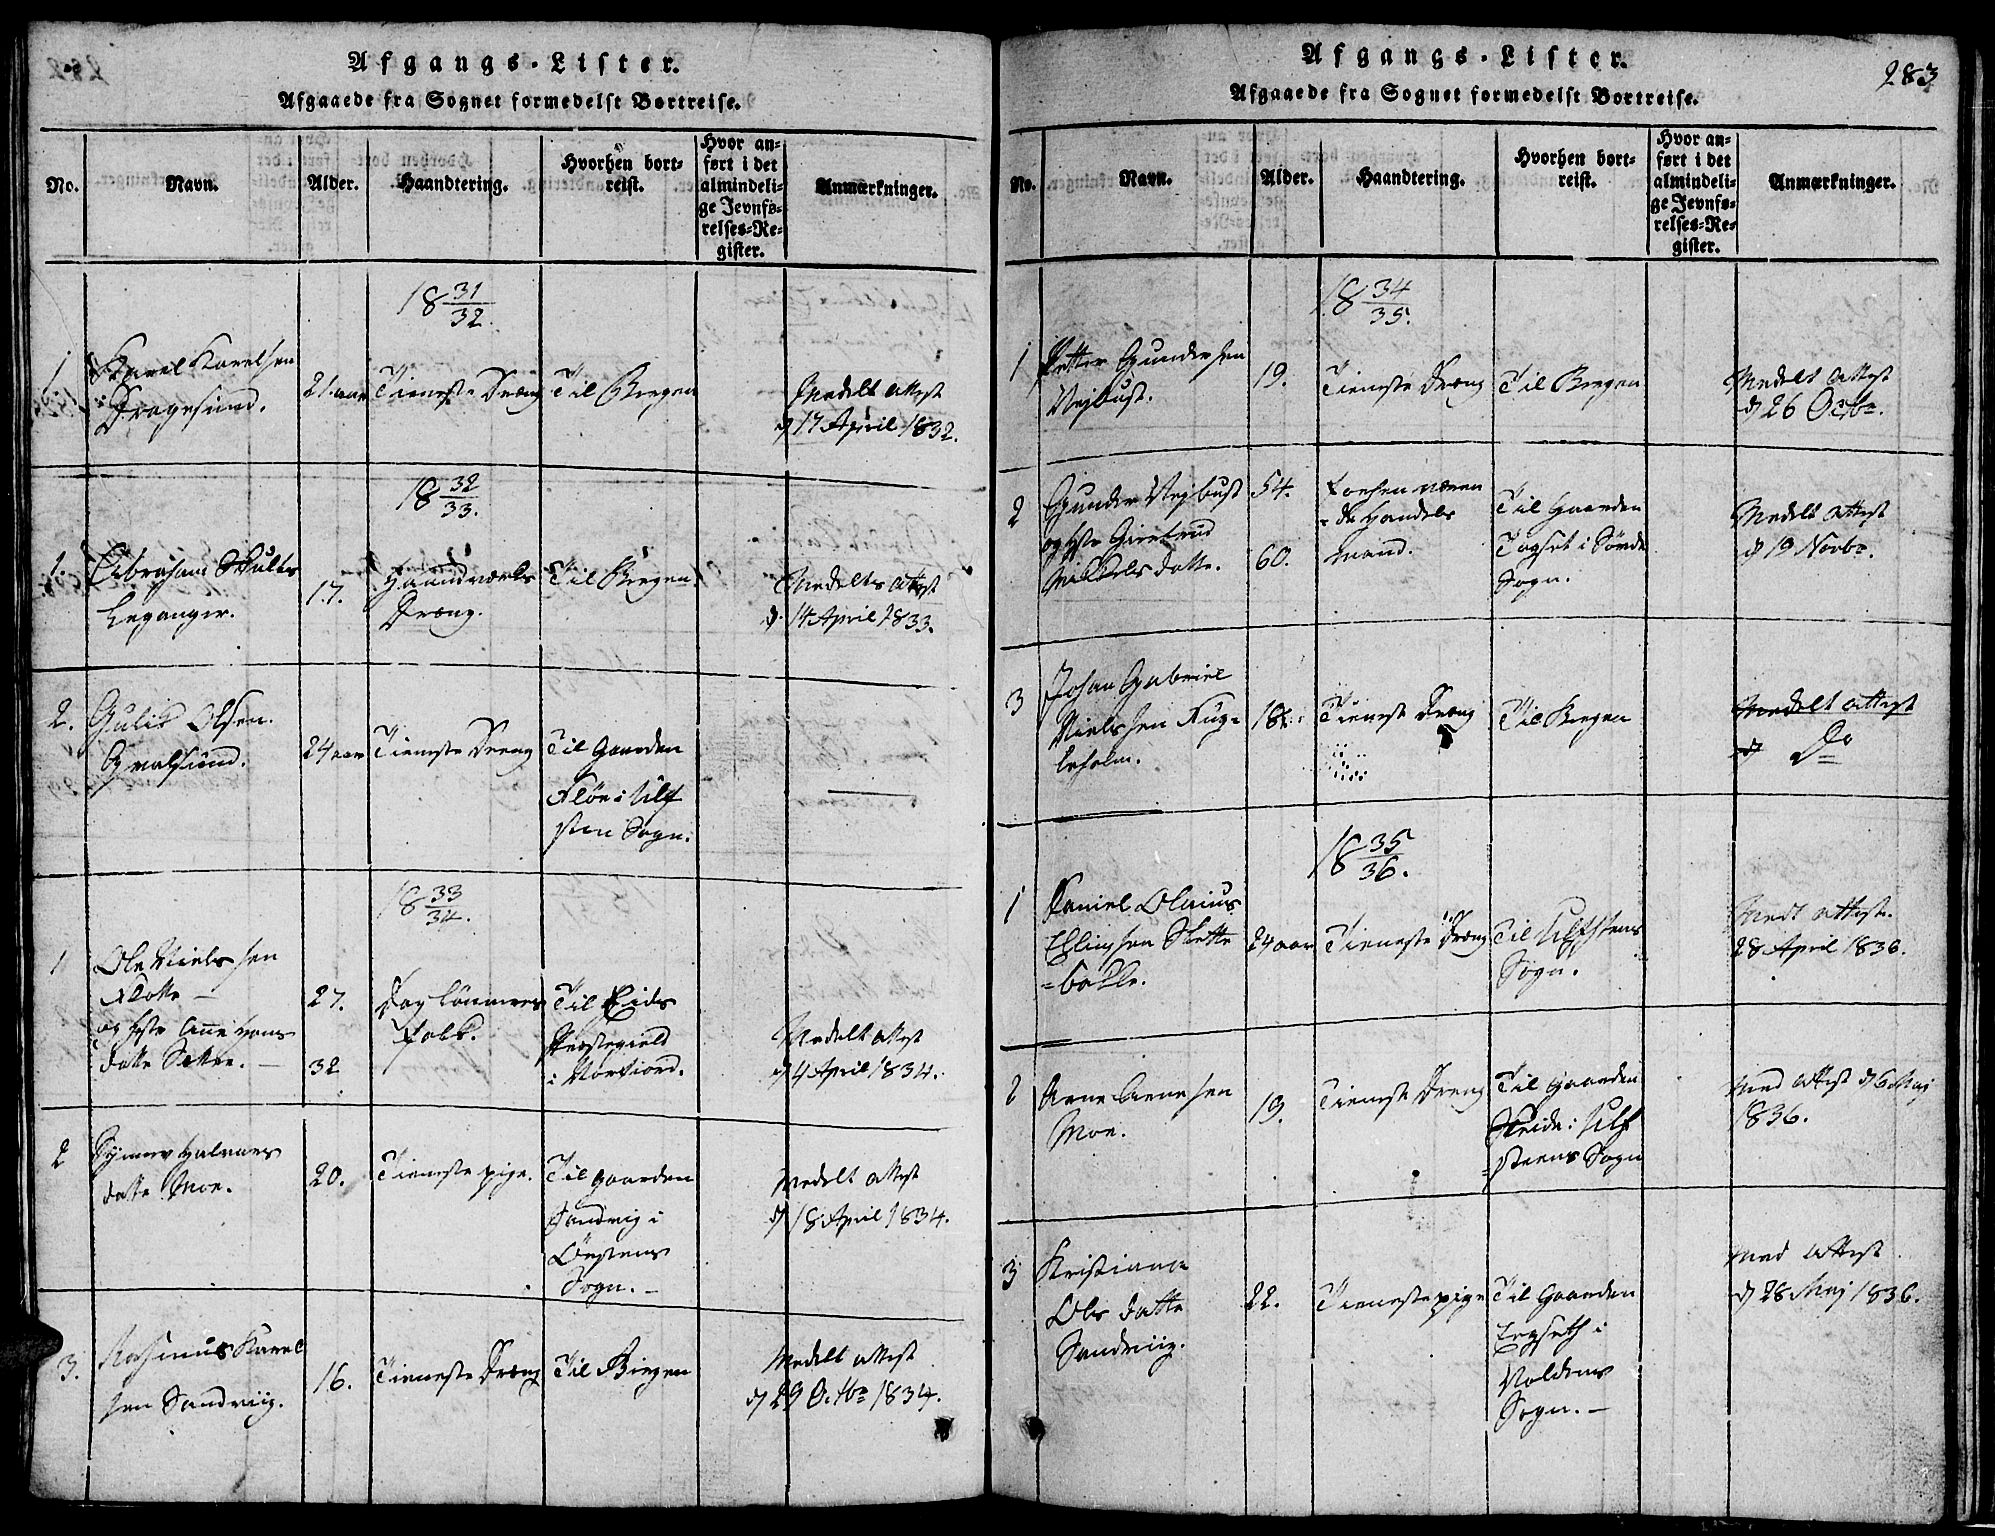 Afgangs-Lister.
Afgaaede fra Sognet formedelst Bortreise.
No.
Navn.
Alder.
Haandtering.
Hvorhen bort-
reist.
Hvor an-
ført i det
almindeli-
ge Jevnfø-
relses-Re-
gister.
Anmærkninger.
18 31/32.
1
Karel Karelsen
Dragesund.
21 aar
Tieneste Dreng
Til Bergen
Medelt Attest
d 17 April 1832.
18 32/33.
1.
Abraham Schults
Leganger.
17.
Haandværks
Dreng.
Til Bergen
Medelt Attest
d. 14 April 1833.
2.
Gulik Olsen
Qvalsund.
24 aar
Tieneste Dreng
Til Gaarden
Fløe i Ulf
sten Sogn.
18 33/34.
1
Ole Nielssen
Flotte
og hste Ane Hans
datte Sætre.
27.
32
Daglønnerer
Folk.
Til Eids
Præstegield
i Norfiord.
Medelt Attest
d 4 April 1834.
2
Synnev Halvors
datte Moe.
20.
Tieneste pige.
Til Gaarden
Sandvig i
Ørstens
Sogn.
Medelt Attest
d 18 April 1834.
3.
Rasmus Karel
sen Sandviig.
16.
Tieneste Dreng
Til Bergen
Medelt Attest
d 29 Octbr 1834.
Afgangs-Lister.
283
Afgaaede fra Sognet formedelst Bortreise.
No.
Navn.
Alder.
Haandtering.
Hvorhen bort-
reist.
Hvor an-
ført i det
almindeli-
ge Jevnfø-
relses-Re-
gister.
Anmærkninger.
18 34/35.
1
Petter Gundersen
Vejbust.
19.
Tieneste Dreng
Til Bergen
Medelt Attest
d 26 Octbr.
2
Gunder Vejbust
og hste Giertrud
Mikkels datte.
54.
60.
Forhen væren
de Handels
mand.
Til Gaarden
Sogn.
Medelt Attest
d 19 Novbr.
3
Johan Gabriel
Nielssen Kug-
leholm.
18.
Tieneste Dreng
Til Bergen
Medelt Attest
d Do
18 35/36.
1
Daniel Olaius
Ellingsen Slette
bakke.
24 aar
Tieneste Dreng
Til Ulfstens
Sogn.
Medt Attest.
28 April 1836.
2
Arne Arnesen
Moe.
19.
Tieneste Dreng
Til Gaarden
Skeide i Ulf
steens Sogn
Med Attest d 6 Maj
1836.
3
Kristianna
Ols datte
Sandviig.
22.
Tieneste pige
Til Gaarden
Egseth i
Voldens
Sogn.
Med Attest
d 28 Maj 1836.